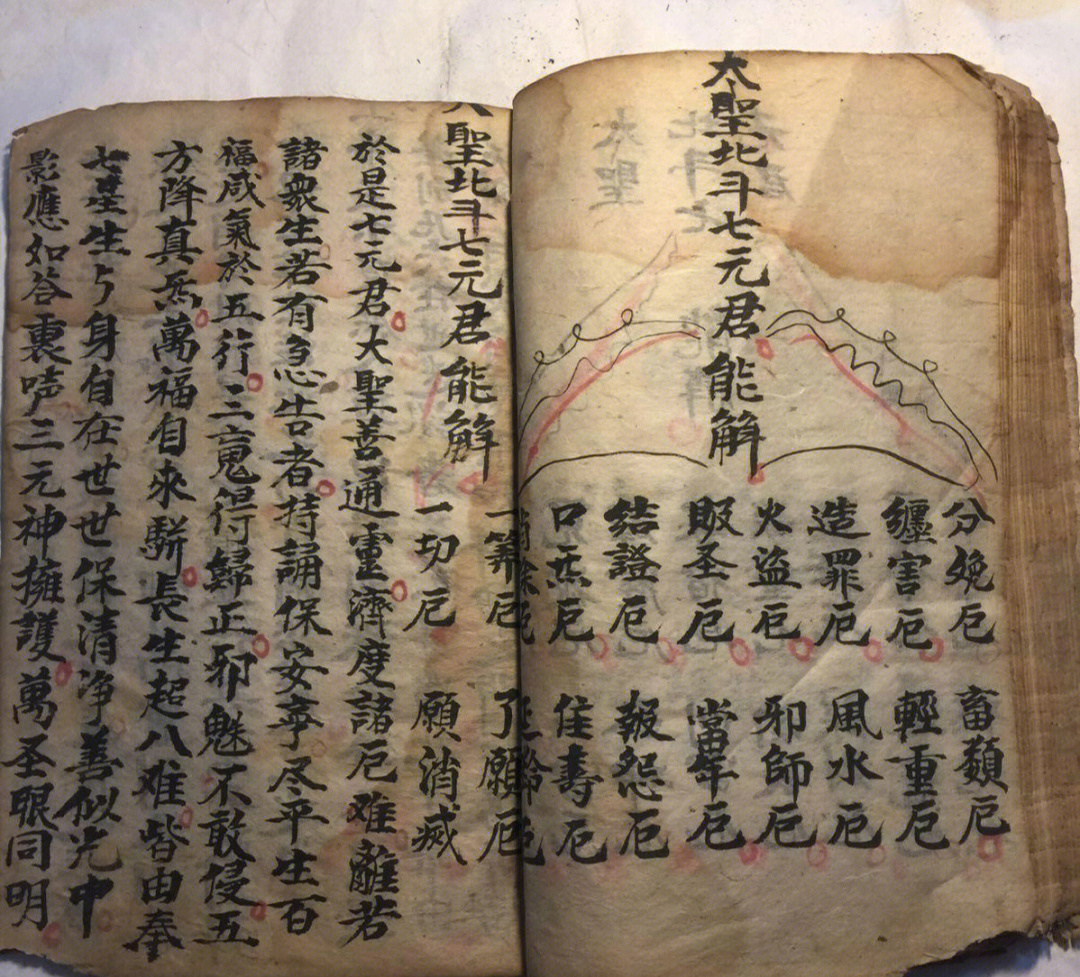 太聖北斗七元君能觧
分娩厄 畜類厄
纏害厄 輕重厄
造罪厄 風水厄
火盗厄 邪師厄
圣厄 當年厄
結證厄 報怨厄
口炁厄 隹壽厄
厄 厄
一筭厄 了願厄
聖北斗七元君能觧
一切厄 願消烕
於是七元君大聖善通霊濟度諸厄难離若
諸衆生若有急告者持誦保安寧尽平生百
福咸氣於五行三䰟得歸正邪魅不敢侵五
方降真炁萬福自來駢長生超八难皆由奉
七星生身自在世世保清净善似光中
影應如答裏声三元神擁護萬圣眼同明